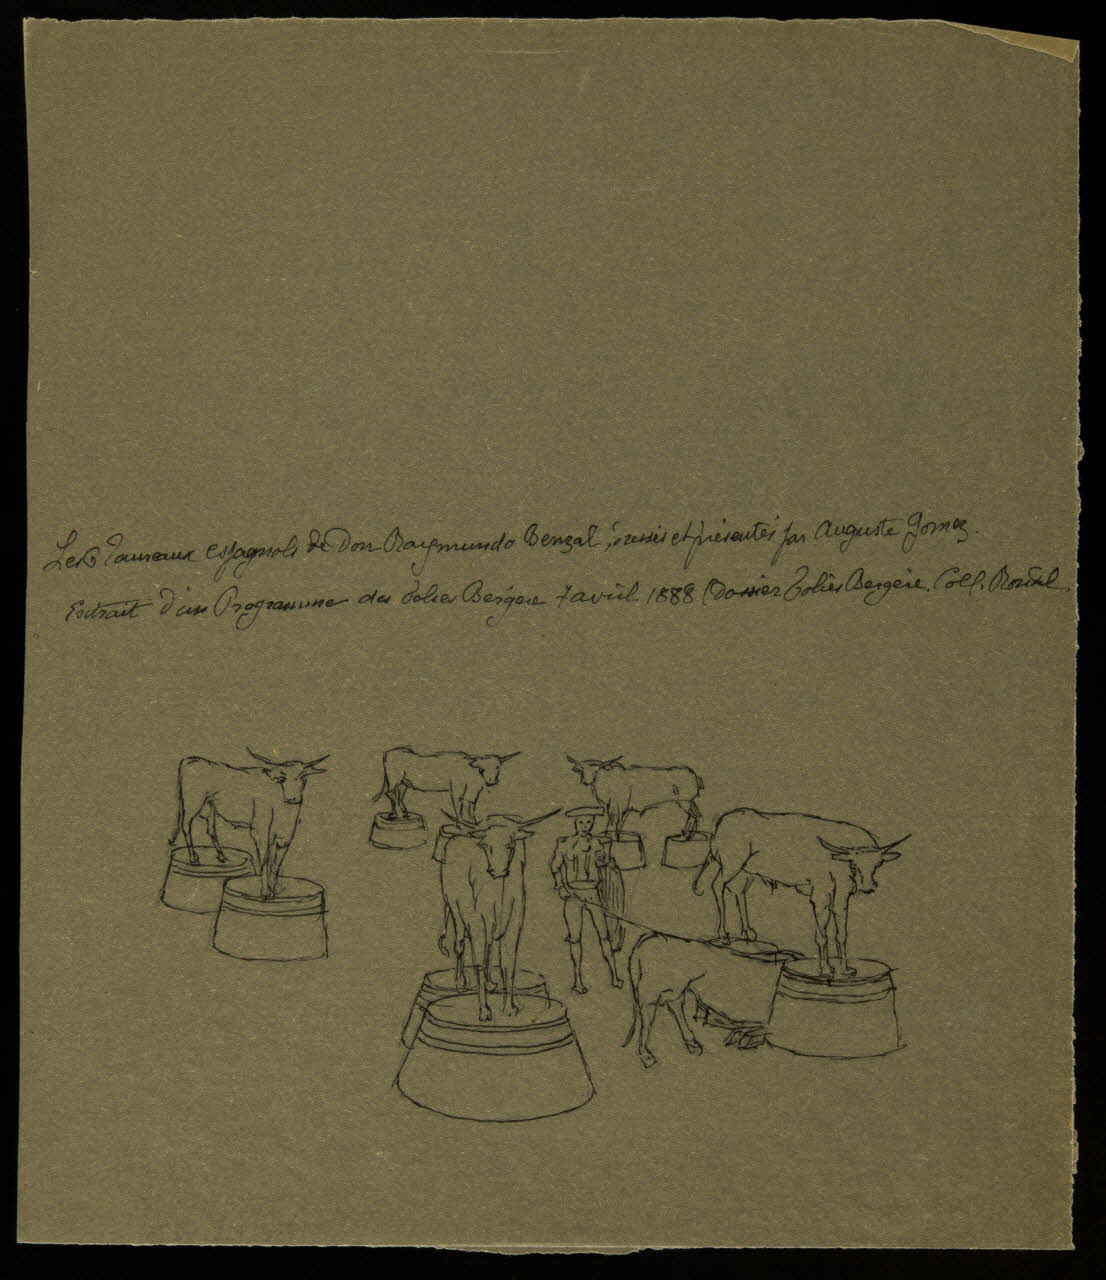 Les 6 Taureaux espagnols de Don Raymundo Benzal, dressés et présentés par Auguste Gomez.
Extrait d'un Programme des Folies Bergère 7 avril 1888 (Dossier Folies Bergère. Coll. Rondel.